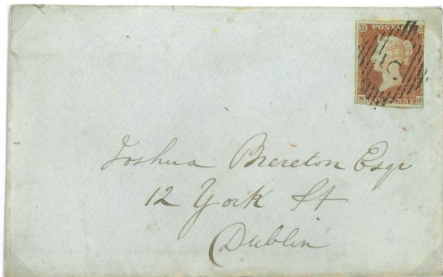 POSTAGE
Joshua Brereton Esqr
12 York St
Dublin